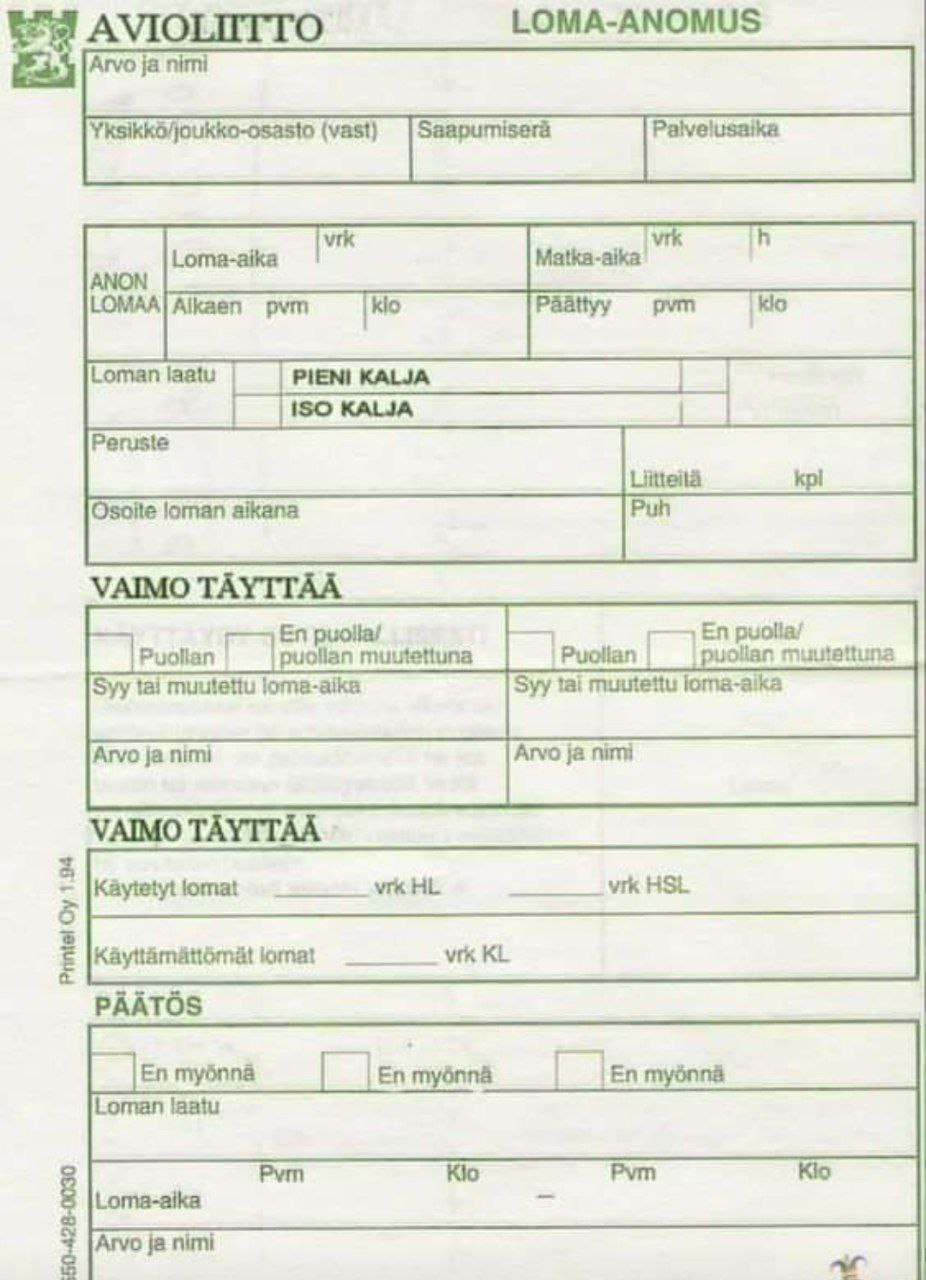 AVIOLIITTO LOMA-ANOMUS
Arvo ja nimi
Yksikkö/joukko-osasto (vast) Saapumiserä Palvelusaika
ANON LOMAA
Loma-aika vrk Matka-aika vrk h
Alkaen pvm klo Päättyy pvm klo
Loman laatu PIENI KALJA
ISO KALJA
Peruste
Liitteitä kpl
Osoite loman aikana Puh
VAIMO TÄYTTÄÄ
Puollan En puolla/ puollan muutettuna Puollan En puolla/ puollan muutettuna
Syy tai muutettu loma-aika Syy tai muutettu loma-aika
Arvo ja nimi Arvo ja nimi
VAIMO TÄYTTÄÄ
Käytetyt lomat vrk HL vrk HSL
Käyttämättömät lomat vrk KL
Printel Oy 1.94
PÄÄTÖS
En myönnä En myönnä En myönnä
Loman laatu
Pvm Klo Pvm Klo
Loma-aika –
Arvo ja nimi
550-428-0030